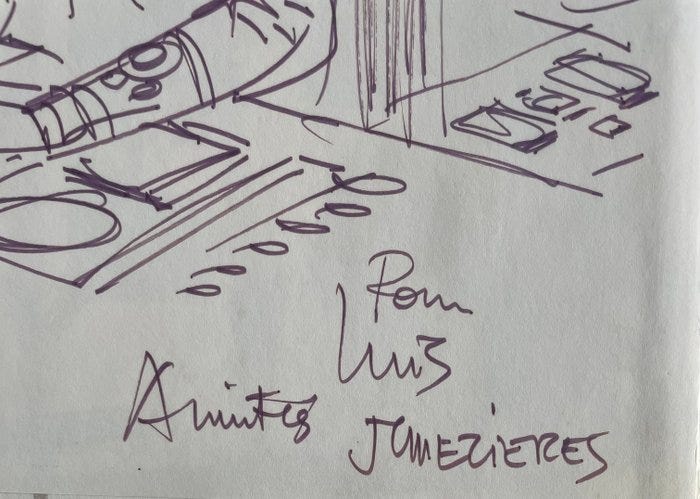 Pour
Luis
Amitiés
JCMEZIERES